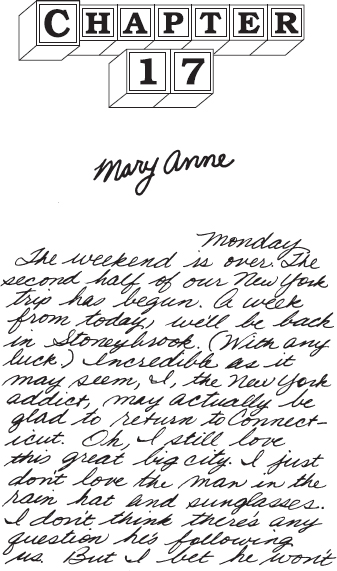 CHAPTER
17
Mary Anne
Monday
The weekend is over. The
second half of our New York
trip has begun. A week
from today, we'll be back
in Stoneybrook. (With any
luck.) Incredible as it
may seem, I, the New York
addict, may actually be
glad to return to Connect-
icut. Oh, I still love
this great big city. I just
don't love the man in the
rain hat and sunglasses.
I don't think there's any
question he's following
us. But I bet he won't